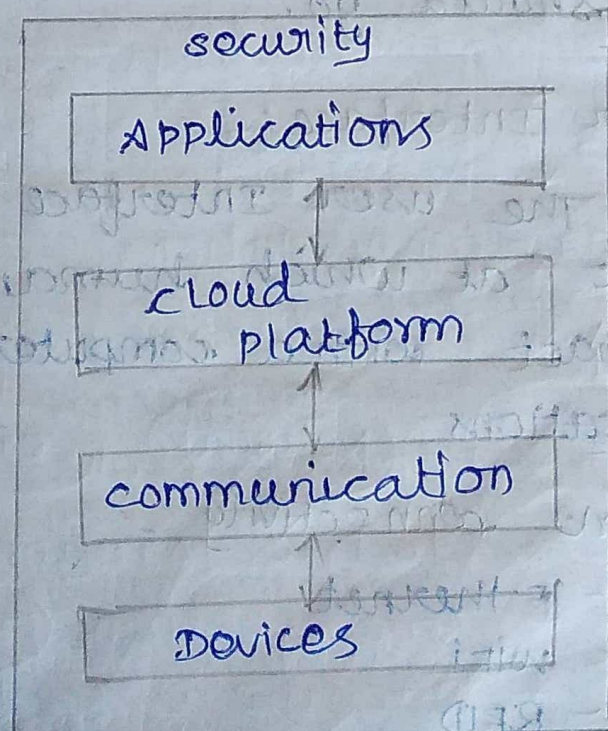 security
Applications
cloud
platform
communication
Devices